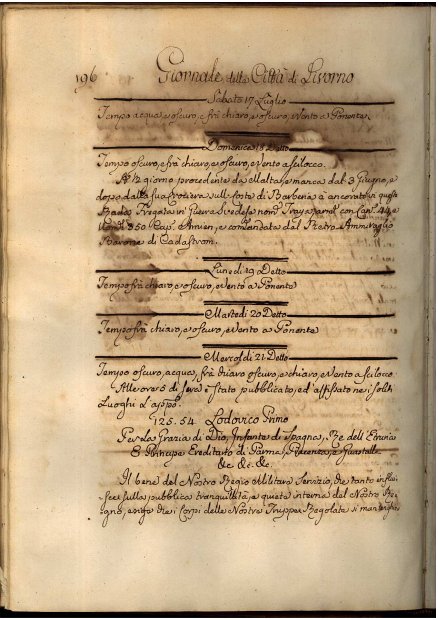 196 Giornale della Città di Livorno
Sabato 17 Luglio
Tempo acqua, e oscuro, e frà chiaro, e oscuro, e Vento a Ponente.
Domenica 18 Detto
Tempo oscuro, e frà chiaro, e oscuro, e Vento a Scilocco.
A 1/2 giorno procedente da Malta, e manca dal 3 Giugno, e
dopo dalla sua Crociera sulle Coste di Barberia è ancorata in questa
Rada Fregata in Guerra Svedese nom. con Can. 44, e
Uom. 350 Cap. e comandata dal Retro Ammiraglio
Barone di Cadastrom.
Lunedi 19 Detto
Tempo frà chiaro, e oscuro, e Vento a Ponente
Martedi 20 Detto
Tempo frà chiaro, e oscuro, e Vento a Ponente
Mercoldi 21 Detto
Tempo oscuro, acqua, frà chiaro oscuro, e chiaro, e Vento a Sciloco
Alle ore 5 di Sera è Stato pubblicato, ed affissato ne i soliti
Luoghi L'app.
125. 54. Lodovico Primo
Per La Grazia di Dio, Infante di Spagna, Re dell'Etruria
E Principe Ereditario di Parma, Piacenza, e Guastalla
&c. &c. &c.
Il bene del Nostro Regio Militare Servizio, che tanto influi
sce sulla pubblica tranquillità, e quiete interna del Nostro Re
gno, esige che i Corpi delle Nostre Truppe Regolate si